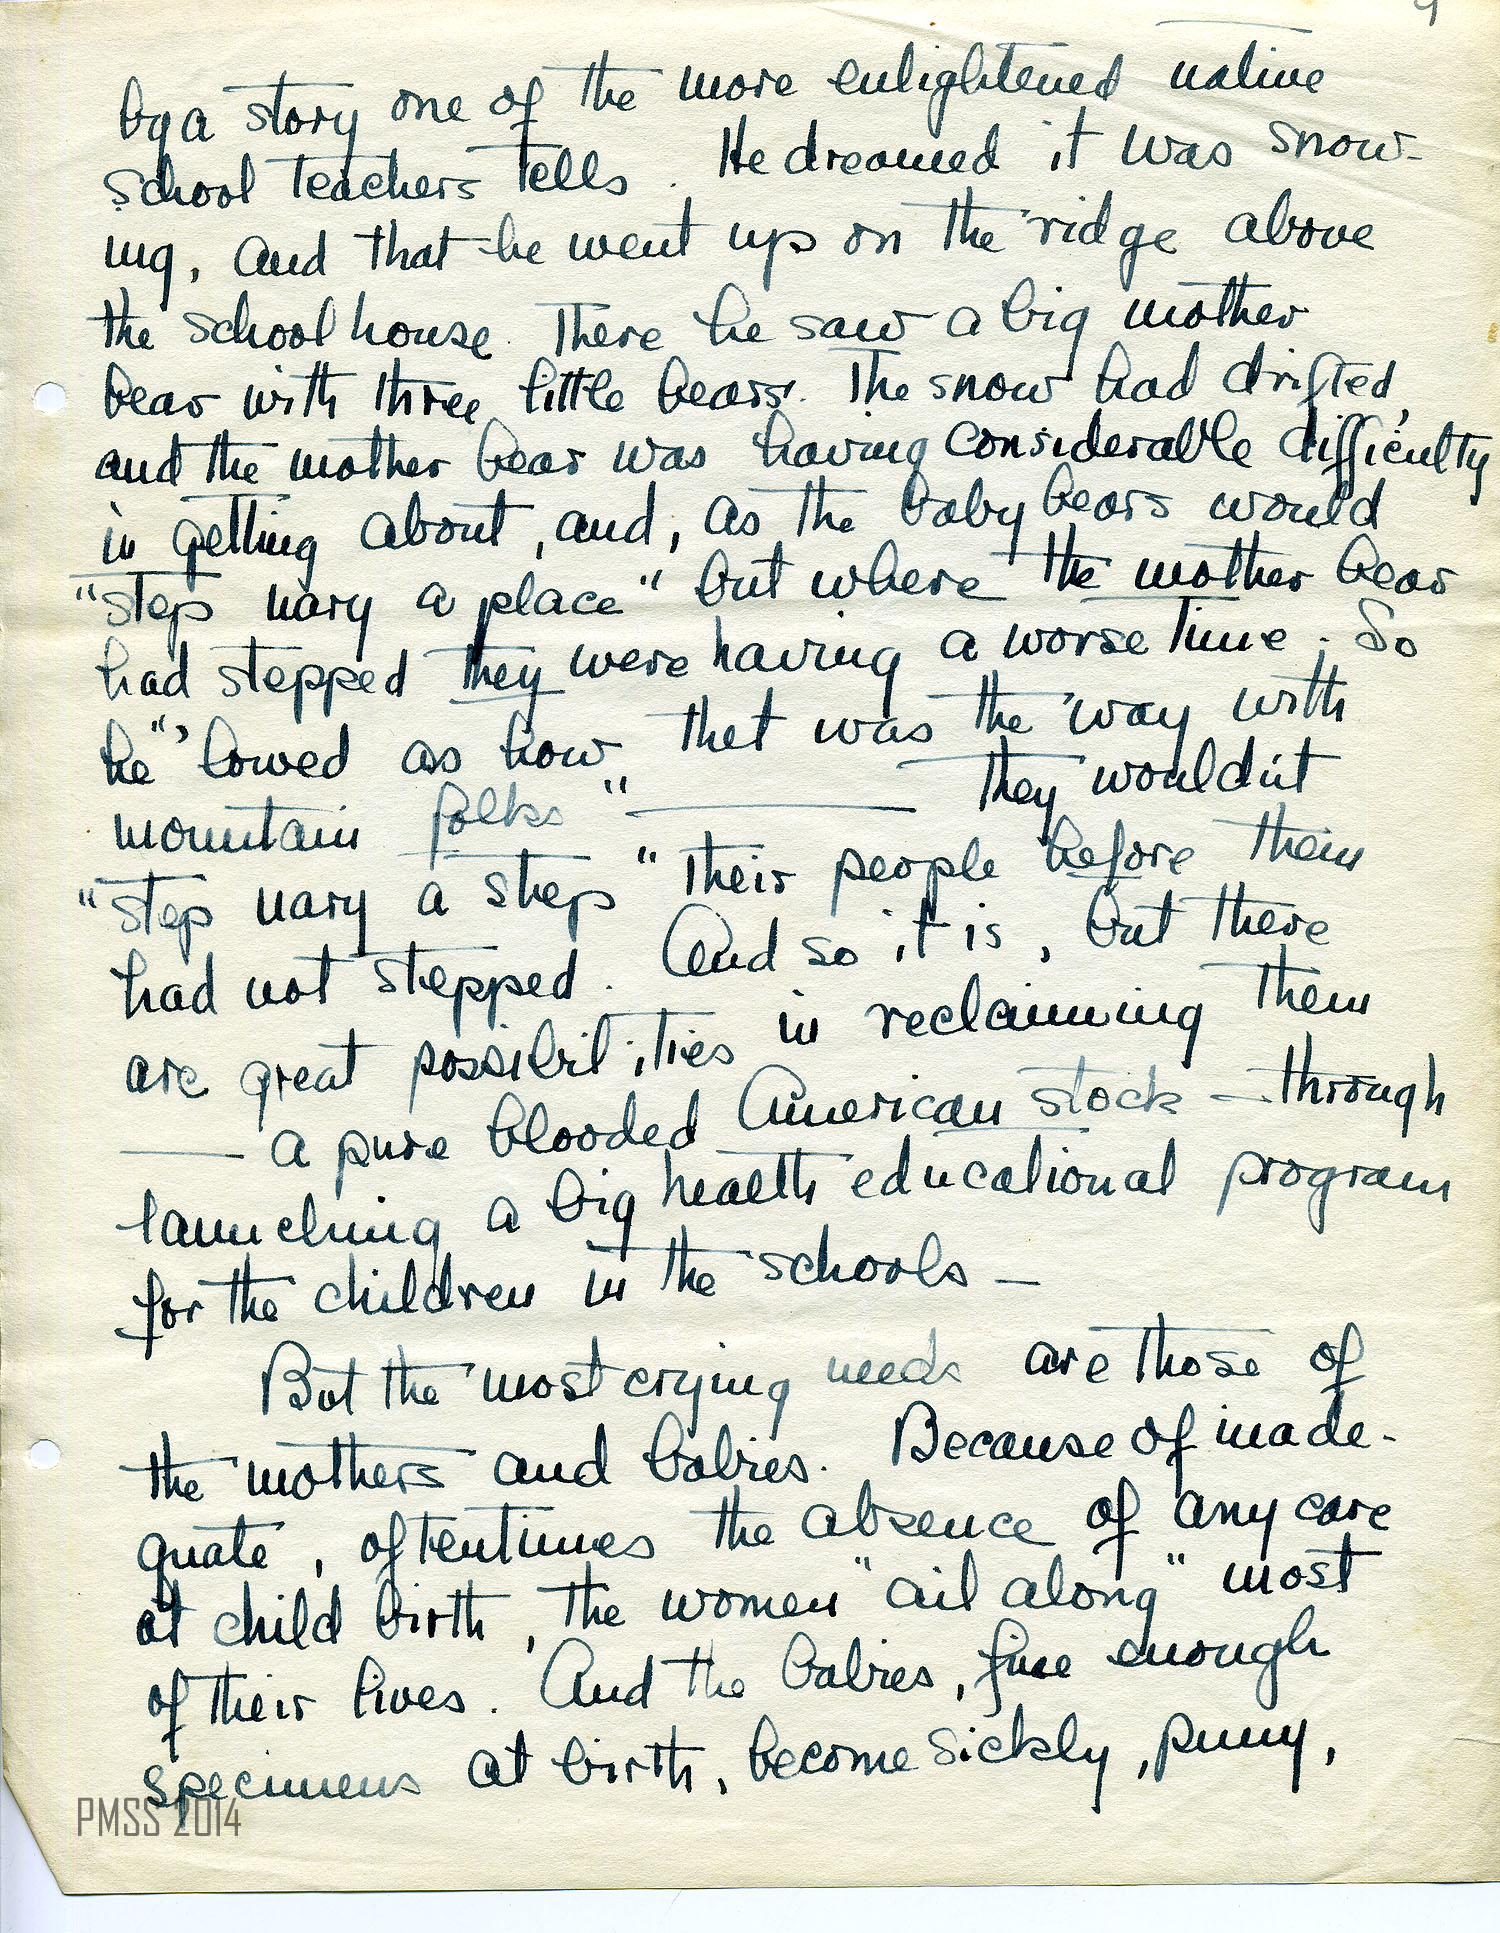 by a story one of the more enlightened native
school teachers tells. He dreamed it was snow-
ing, and that he went up on the ridge above
the school house. There he saw a big mother
bear with three little bears. The snow had drifted,
and the mother bear was having considerable difficulty
in getting about, and, as the baby bears would
"step nary a place" but where the mother bear
had stepped they were having a worse time. So
he "'lowed as how thet was the way with
mountain folks" — they wouldn't
"step nary a step" their people before them
had not stepped. And so it is, but there
are great possibilities in reclaiming them
— a pure blooded American stock — through
launching a big health educational program
for the children in the schools —
But the most crying needs are those of
the mothers and babies. Because of inade-
quate, oftentimes the absence of any care
at child birth, the women "ail along" most
of their lives. And the babies, fine enough
specimens at birth, become sickly, puny,
PMSS 2014